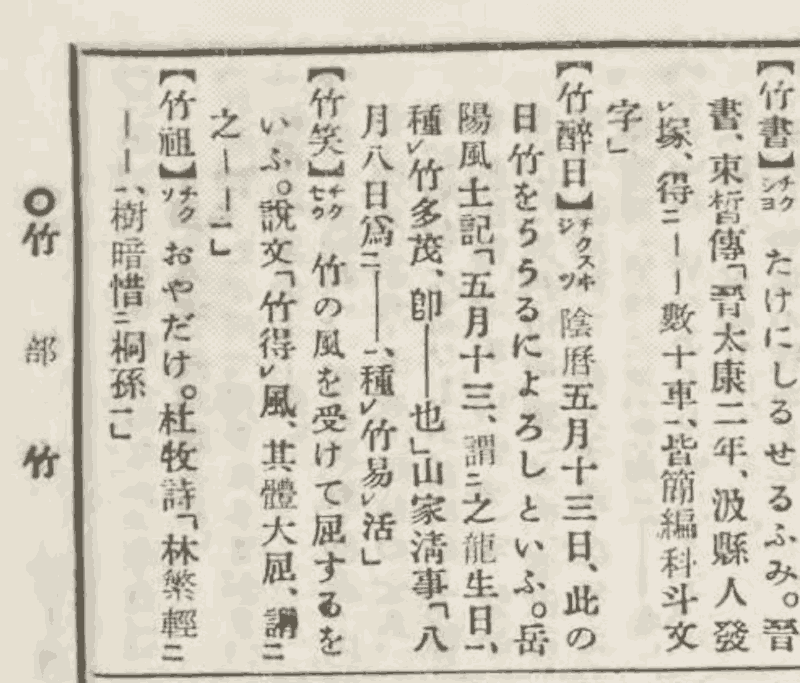 【竹書】チクシヨ たけにしるせるふみ。晉
書、束晳傳「晉太康二年、汲縣人發
レ塚、得二――數十車一、皆簡編科斗文
字」
【竹醉日】チクスヰジツ 陰曆五月十三日、此の
日竹をううるによろしといふ。岳
陽風土記「五月十三、謂二之龍生日一、
種レ竹多茂、卽―――也」山家淸事「八
月八日爲二―――一、種レ竹易レ活」
【竹笑】チクセウ 竹の風を受けて屈するを
いふ。說文「竹得レ風、其體大屈、謂二
之――一」
【竹祖】チクソ おやだけ。杜牧詩「林繁輕二
――一、樹暗惜二桐孫一」
○竹部 竹